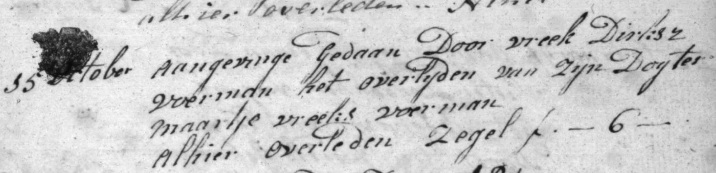 alhier overleden
15 October aangevinge Gedaan Door vreek Dirksz
voerman het overlijden van zijn Dogter
maartje vreeks voerman
alhier overleden zegel f. — 6 —